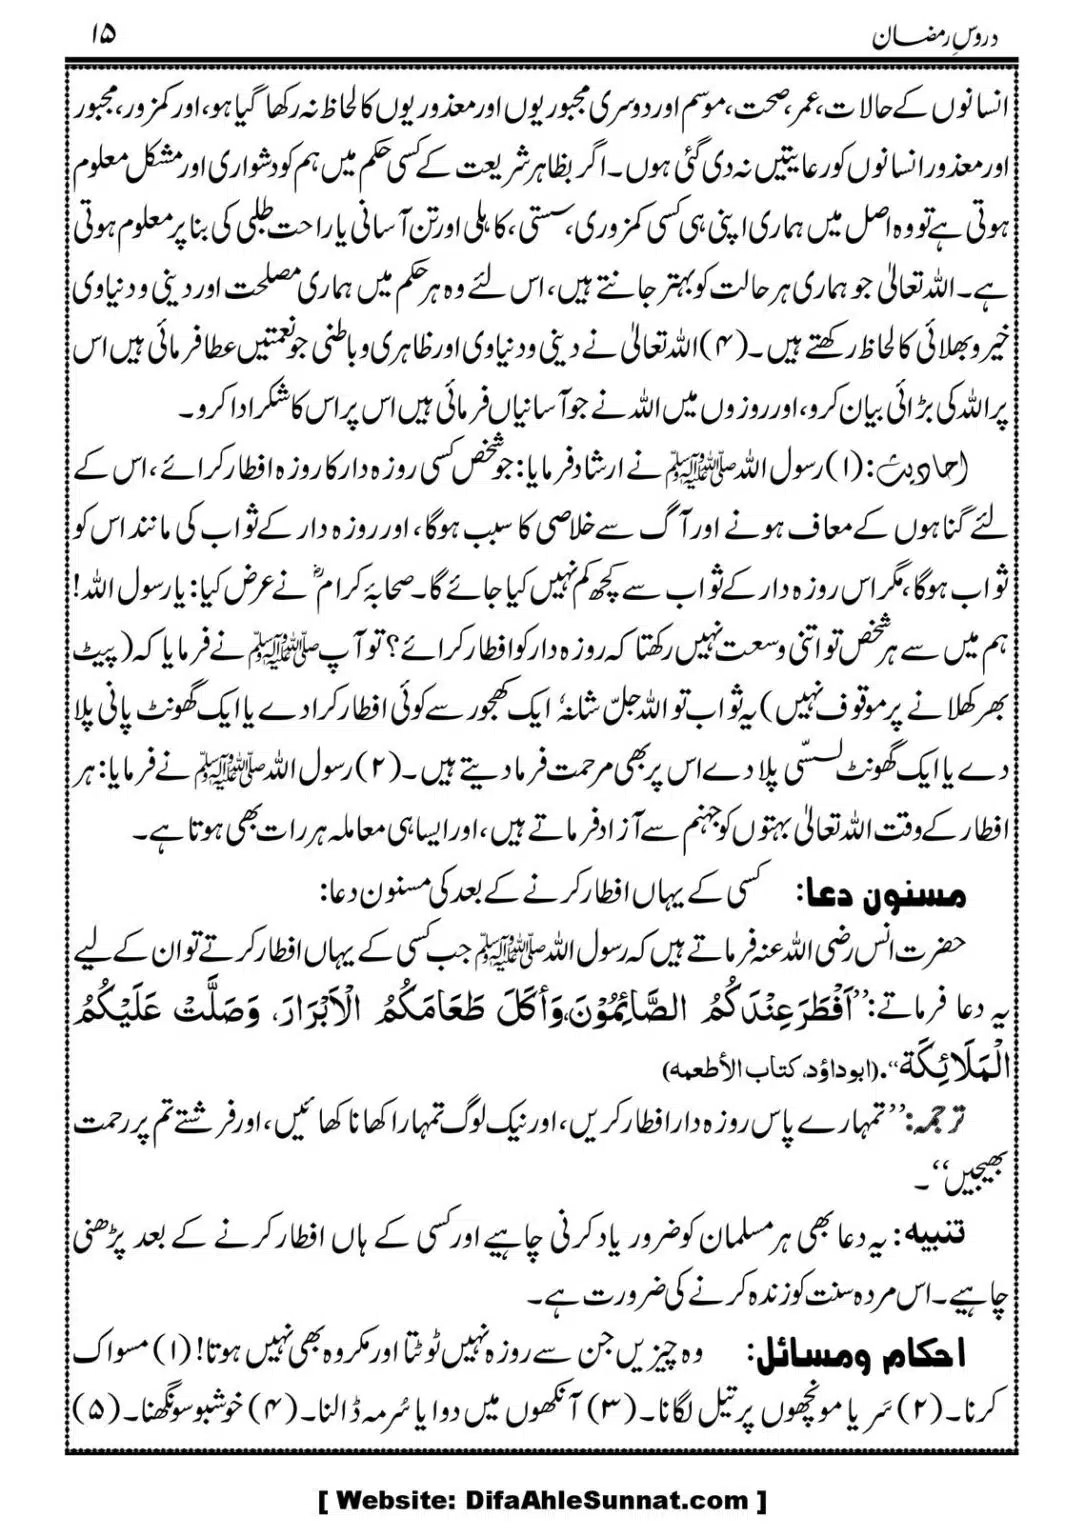 دروسِ رمضان
۱۵
انسانوں کے حالات، عمر، صحت، موسم اور دوسری مجبوریوں اور معذوریوں کا لحاظ نہ رکھا گیا ہو، اور کمزور، مجبور
اور معذور انسانوں کو رعایتیں نہ دی گئی ہوں۔ اگر بظاہر شریعت کے کسی حکم میں ہم کو دشواری اور مشکل معلوم
ہوتی ہے تو وہ اصل میں ہماری اپنی ہی کسی کمزوری، سستی، کاہلی اور تن آسانی یا راحت طلبی کی بنا پر معلوم ہوتی
ہے۔ اللہ تعالیٰ جو ہماری ہر حالت کو بہتر جانتے ہیں، اس لئے وہ ہر حکم میں ہماری مصلحت اور دینی و دنیاوی
خیر و بھلائی کا لحاظ رکھتے ہیں۔ (۴) اللہ تعالیٰ نے دینی و دنیاوی اور ظاہری و باطنی جو نعمتیں عطا فرمائی ہیں اس
پر اللہ کی بڑائی بیان کرو، اور روزوں میں اللہ نے جو آسانیاں فرمائی ہیں اس پر اس کا شکر ادا کرو۔
احادیث: (۱) رسول اللہ ﷺ نے ارشاد فرمایا: جو شخص کسی روزہ دار کا روزہ افطار کرائے، اس کے
لئے گناہوں کے معاف ہونے اور آگ سے خلاصی کا سبب ہوگا، اور روزہ دار کے ثواب کی مانند اس کو
ثواب ہوگا، مگر اس روزہ دار کے ثواب سے کچھ کم نہیں کیا جائے گا۔ صحابۂ کرامؓ نے عرض کیا: یا رسول اللہ!
ہم میں سے ہر شخص تو اتنی وسعت نہیں رکھتا کہ روزہ دار کو افطار کرائے؟ تو آپ ﷺ نے فرمایا کہ (پیٹ
بھر کھلانے پر موقوف نہیں) یہ ثواب تو اللہ جلّ شانہٗ ایک کھجور سے کوئی افطار کرا دے یا ایک گھونٹ پانی پلا
دے یا ایک گھونٹ لسّی پلا دے اس پر بھی مرحمت فرما دیتے ہیں۔ (۲) رسول اللہ ﷺ نے فرمایا: ہر
افطار کے وقت اللہ تعالیٰ بہتوں کو جہنم سے آزاد فرماتے ہیں، اور ایسا ہی معاملہ ہر رات بھی ہوتا ہے۔
مسنون دعا: کسی کے یہاں افطار کرنے کے بعد کی مسنون دعا:
حضرت انس رضی اللہ عنہ فرماتے ہیں کہ رسول اللہ ﷺ جب کسی کے یہاں افطار کرتے تو ان کے لیے
یہ دعا فرماتے: ’’اَفْطَرَ عِنْدَكُمُ الصَّائِمُوْنَ، وَأَكَلَ طَعَامَكُمُ الْاَبْرَارَ، وَصَلَّتْ عَلَيْكُمُ
الْمَلَائِكَة‘‘. (ابوداؤد، کتاب الأطعمه)
ترجمہ: ’’تمہارے پاس روزہ دار افطار کریں، اور نیک لوگ تمہارا کھانا کھائیں، اور فرشتے تم پر رحمت
بھیجیں‘‘۔
تنبیہ: یہ دعا بھی ہر مسلمان کو ضرور یاد کرنی چاہیے اور کسی کے ہاں افطار کرنے کے بعد پڑھنی
چاہیے۔ اس مردہ سنت کو زندہ کرنے کی ضرورت ہے۔
احکام ومسائل: وہ چیزیں جن سے روزہ نہیں ٹوٹتا اور مکروہ بھی نہیں ہوتا! (۱) مسواک
کرنا۔ (۲) سَر یا مونچھوں پر تیل لگانا۔ (۳) آنکھوں میں دوا یا سُرمہ ڈالنا۔ (۴) خوشبو سونگھنا۔ (۵)
[ Website: DifaAhleSunnat.com ]